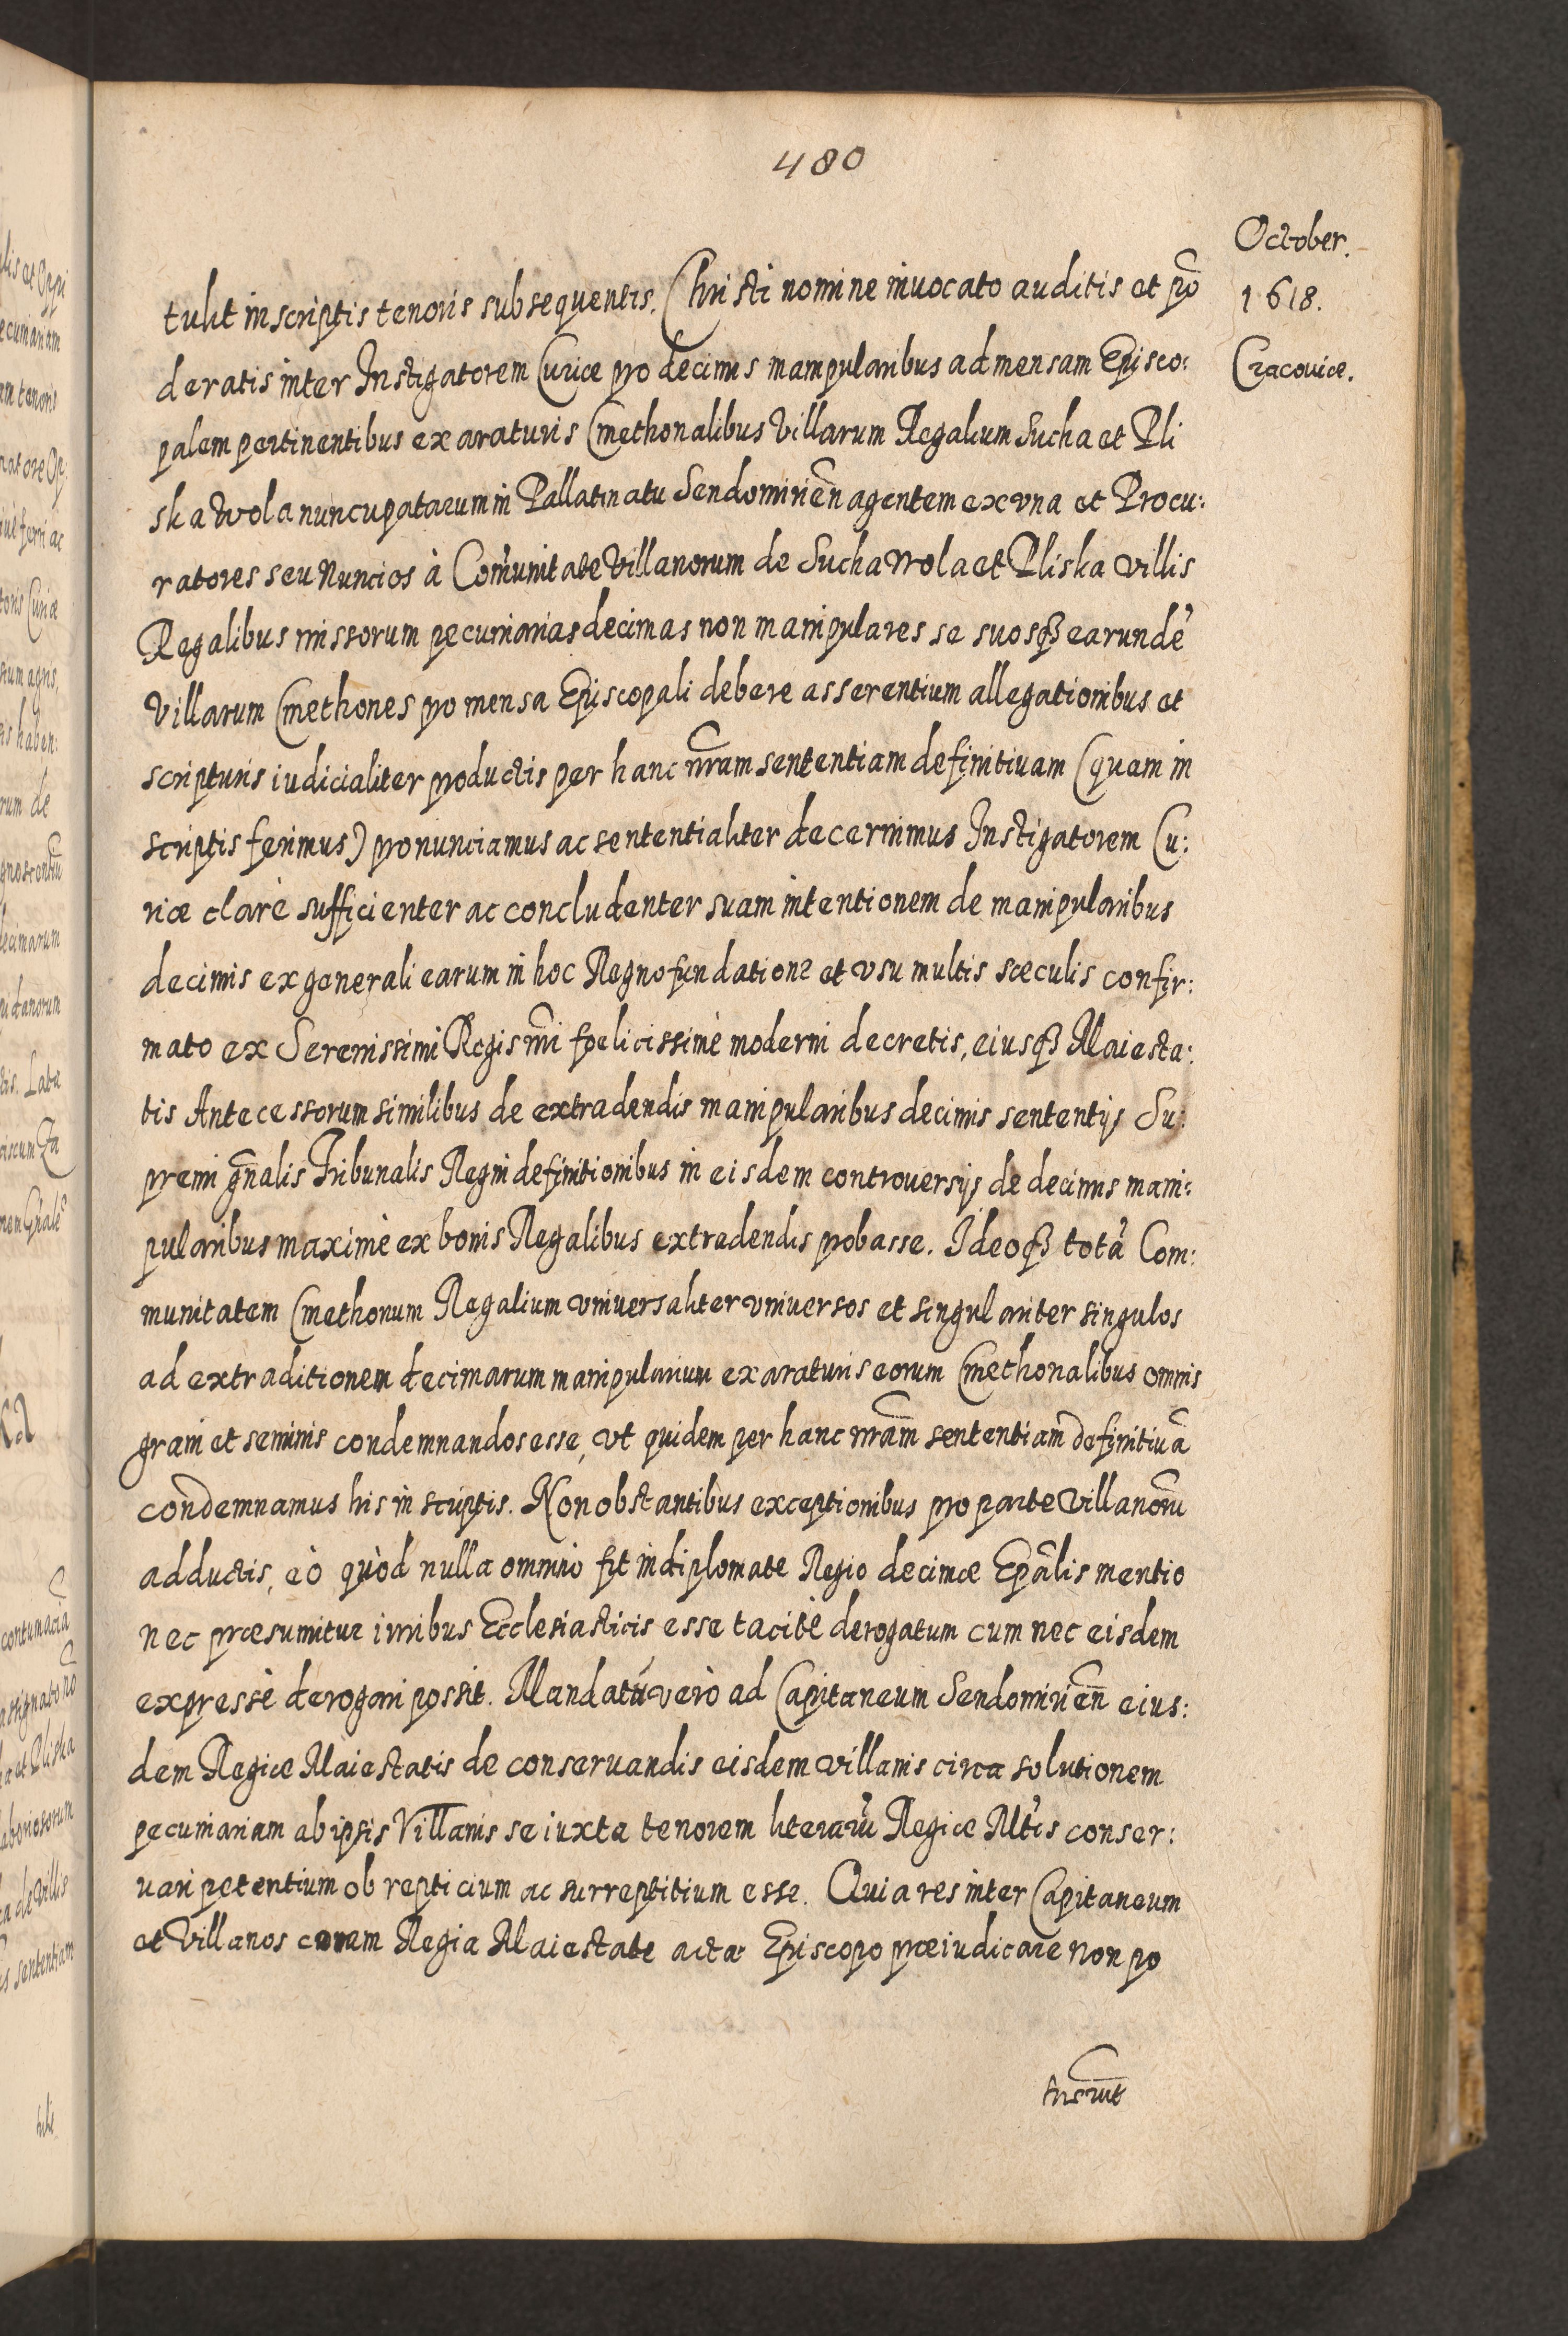 480
October.
1618.
Cracouiæ.
tulit in scriptis tenoris subsequentis. Christi nomine inuocato auditis et põ
deratis inter Instigatorem Curiæ pro decimis manipularibus ad mensam Episco:
palem pertinentibus ex araturis Cmethonalibus Villarum Regalium Sucha et Pli
ska Wola nuncupatarum in Pallatinatu Sendomirien̄ agentem ex vna et Procu:
ratores seu Nuncios à Com̃unitate Villanorum de Sucha Wola et Pliska villis
Regalibus missorum pecuniarias decimas non manipulares se suosqȝ earundẽ
Villarum Cmethones pro mensa Episcopali debere asserentium allegationibus et
scripturis iudicialiter productis per hanc nr̃am sententiam definitiuam (quam in
scriptis ferimus) pronunciamus ac sententialiter decernimus Instigatorem Cu:
riæ clarè sufficienter ac concludenter suam intentionem de manipularibus
decimis ex generali earum in hoc Regno fundatione et vsu multis sæculis confir:
mato ex Serenissimi Regis nr̃i fœlicissimè moderni decretis, eiusqȝ Maiesta:
tis Antecessorum similibus de extradendis manipularibus decimis sententijs Su:
premi gñalis Tribunalis Regni definitionibus in eisdem controuersijs de decimis mani:
pularibus maximè ex bonis Regalibus extradendis probasse. Ideoqȝ totã Com:
munitatem Cmethonum Regalium vniuersaliter vniuersos et singulariter singulos
ad extraditionem decimarum manipularium ex araturis eorum Cmethonalibus omnis
grani et seminis condemnandos esse, vt quidem per hanc nr̃am sententiam definitiuã
condemnamus his in scriptis. Non obstantibus exceptionibus pro parte Villanorũ
adductis, eò quòd nulla omnino fit in diplomate Regio decimæ Ep̃alis mentio
nec præsumitur iuribus Ecclesiasticis esse tacitè derogatum cum nec eisdem
expressè derogari possit. Mandatũ verò ad Capitaneum Sendomirien̄ eius:
dem Regiæ Maiestatis de conseruandis eisdem villanis circa solutionem
pecuniariam ab ipsis Villanis se iuxta tenorem literarũ Regiæ Mt̃is conser:
uari petentium obrepticium ac surreptitium esse. Quia res inter Capitaneum
et Villanos coram Regia Maiestate acta Episcopo præiudicare non po